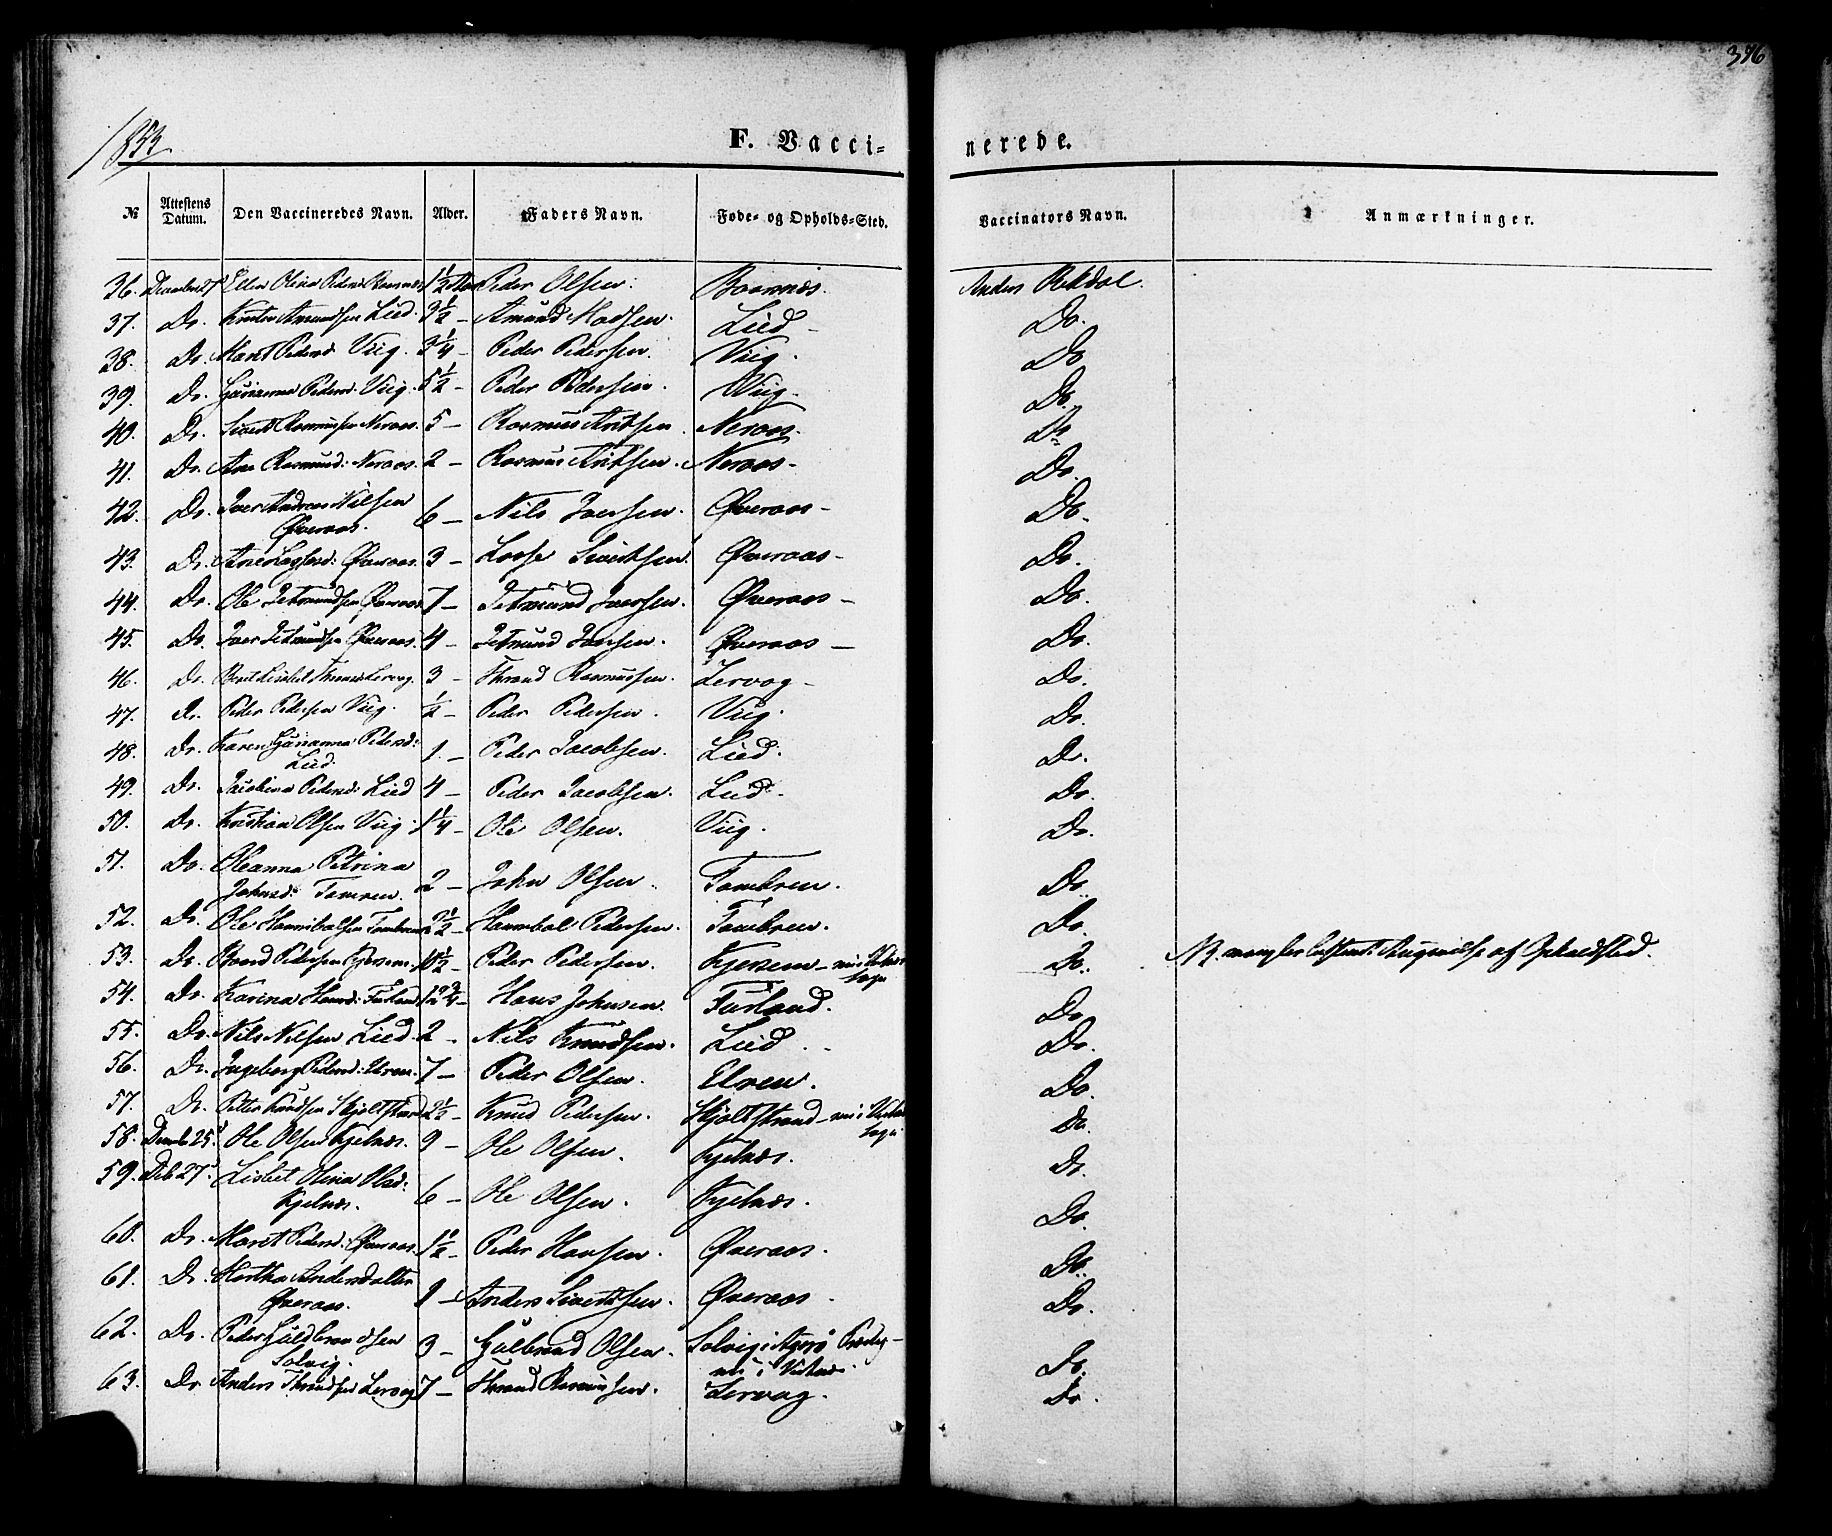 396
1853
F. Vacci-
nerede.
№ Attestens Datum. Den Vaccineredes Navn. Alder. Faders Navn. Føde- og Opholds-Sted. Vaccinators Navn. Anmærkninger.
36. Ellen Olina Peders Peder Olsen. Anders Rekdal.
37. Do. Amundsen Lied. 3½ - Amund Madsen. Lied - Do.
38. Do. Marit Pedersd Viig. 3¼ - Peder Pedersen. Viig. Do
39. Do. Pedersd: Viig. 5½ - Peder Pedersen. Viig. Do.
40. Do. Sivert Rasmussen Neraas. 5 - Rasmus Neraas. Do
41. Do. Ane Rasmusd: Neraas. 2 - Rasmus Neraas - Do.
42. Do. Iver Andreas Nilsen
Øveraas. 6 - Nils Iversen. Øveraas - Do.
43. Do. Ane Øveraas. 3 - Lasse Sivertsen. Øveraas - Do.
44. Do. Ole Jetmundsen Øveraas 7 - Jetmund Iversen. Øveraas - Do.
45. Do. Iver Jetmundsen Øveraas. 4 - Jetmund Iversen. Øveraas - Do.
46. Do. Lervog. 3 - Thrond Rasmussen. Lervog - Do.
47. Do. Peder Pedersen Viig. ½ - Peder Pedersen. Viig. Do.
48. Do. Karen Pedersd:
Lied. 1. - Peder Jacobsen. Lied. Do.
49. Do. Jacobina Pedersd: Lied 4 - Peder Jacobsen. Lied. Do.
50. Do. Kristian Olsen Viig. 1¼ - Ole Olsen. Viig. Do.
51. Do. Oleanna Petrina
Johnsd: Tomren. 2 - John Olsen. Tombren. Do.
52. Do. Ole Hannibalsen Tombren 2½ - Hannibal Pedersen. Tombren. Do.
53. Do. Pedersen Peder Pedersen. Kjersem - nu i
Sogn Do. NB. mangler bestemt af Opholdsted.
54. Do. Karina Hansd: Hans Johnsen. Furland. Do.
55. Do. Nils Nilsen Lied. 2 - Nils Knudsen. Lied. Do.
56. Do. Ingeborg Pedersd: 7 - Peder Olsen. Elven. Do.
57. Do. Peter Knudsen Skjeltstrand 2½ - Knud Pedersen. Skjeltstrand - nu i
Sogn Do.
58. 25. Ole Olsen Kjelnæs. 9 - Ole Olsen. Kjelnæs. Do.
59. 27. Lisbet Olina Olsd:
Kjelnæs. 6 - Ole Olsen. Kjelnæs. Do.
60. Do. Marit Pedersd: Øveraas. 1½ - Peder Hansen. Øveraas. Do.
61. Do. Martha Andersdatter
Øveraas. Anders Sivertsen. Øveraas. Do.
62. Do. Peder Guldbrandsen
Solvig. 3 - Gulbrand Olsen. Solvig i
nu i Do.
63. Do. Anders Lervog 7 - Thrond Rasmussen. Lervog. Do.